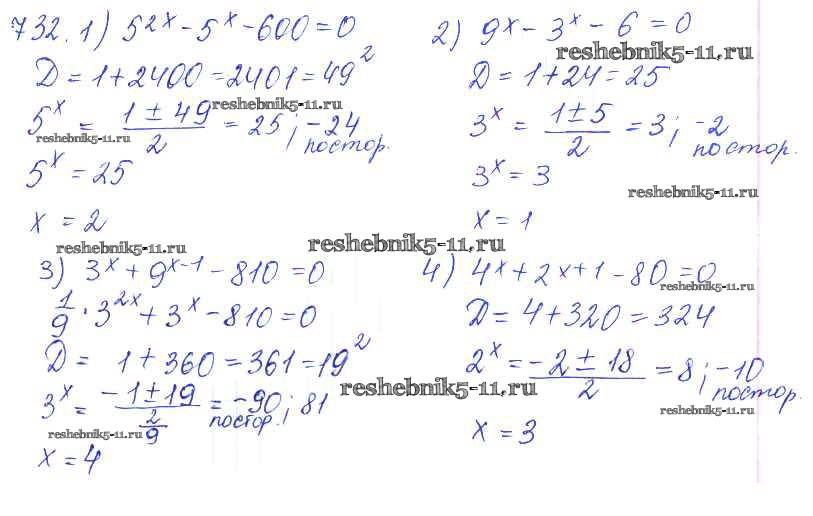 732. 1) 5^{2x} - 5^x - 600 = 0
Д = 1 + 2400 = 2401 = 49^2
reshebnik5-11.ru
5^x = \frac{1 ± 49}{2} = 25; -24
постор.
reshebnik5-11.ru
5^x = 25
x = 2
reshebnik5-11.ru
2) 9^x - 3^x - 6 = 0
reshebnik5-11.ru
Д = 1 + 24 = 25
3^x = \frac{1 ± 5}{2} = 3; -2
постор.
3^x = 3
reshebnik5-11.ru
x = 1
reshebnik5-11.ru
3) 3^x + 9^{x-1} - 810 = 0
\frac{1}{9} · 3^{2x} + 3^x - 810 = 0
Д = 1 + 360 = 361 = 19^2
3^x = \frac{-1 ± 19}{\frac{2}{9}} = -90; 81
постор.
reshebnik5-11.ru
x = 4
4) 4^x + 2^{x+1} - 80 = 0
reshebnik5-11.ru
Д = 4 + 320 = 324
2^x = \frac{-2 ± 18}{2} = 8; -10
постор.
reshebnik5-11.ru
reshebnik5-11.ru
x = 3